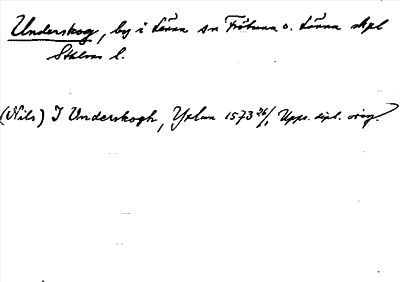 Underskog, by i Länna sn Frötuna o. Länna skpl
Sthlms l.
(Nils) I Underskogh, 1573 26/1 Upps. dipl. orig.